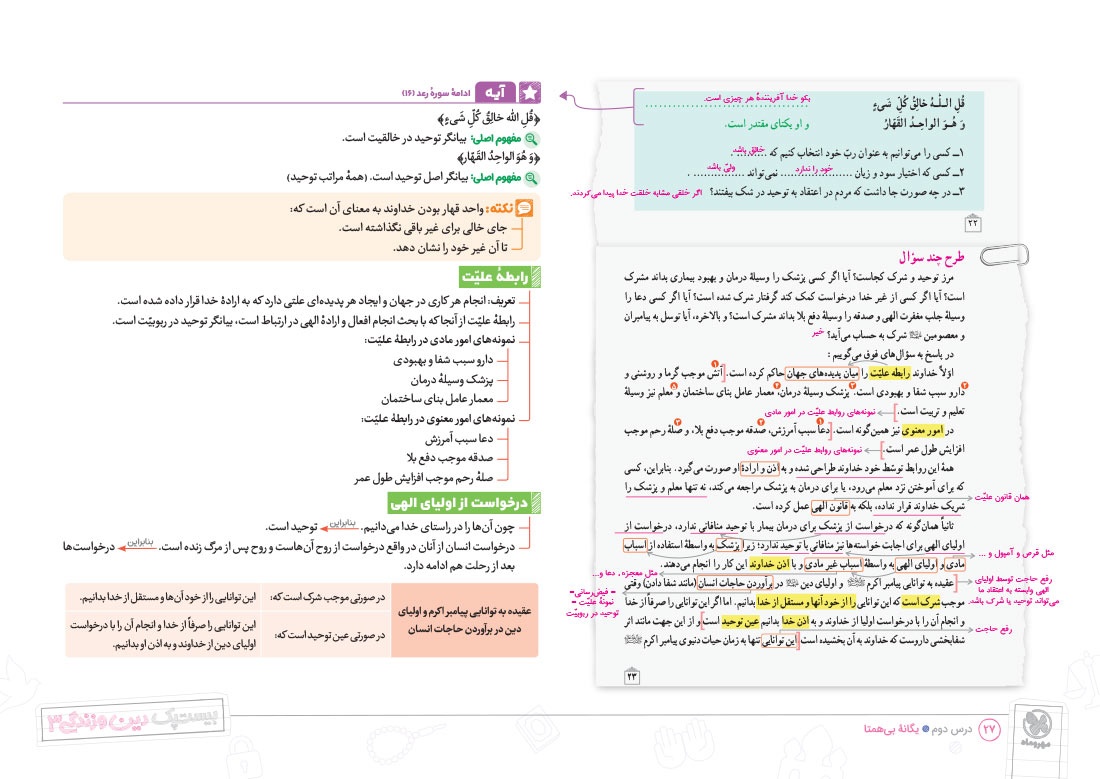 قُلِ الـلّـهُ خالِقُ کُلِّ شَیءٍ
بگو خدا آفریننده هر چیزی است.
وَ هُـوَ الواحِـدُ القَهّارُ
و او یکتای مقتدر است.
۱ــ کسی را می‌توانیم به عنوان ربّ خود انتخاب کنیم که خالق باشد.
۲ــ کسی که اختیار سود و زیان خود را ندارد نمی‌تواند ولیّ باشد.
۳ــ در چه صورت جا داشت که مردم در اعتقاد به توحید در شک بیفتند؟ اگر خلقی مشابه خلقت خدا پیدا می‌کردند.
۲۲
طرح چند سؤال
مرز توحید و شرک کجاست؟ آیا اگر کسی پزشک را وسیلهٔ درمان و بهبود بیماری بداند مشرک
است؟ آیا اگر کسی از غیر خدا درخواست کمک کند گرفتار شرک شده است؟ آیا اگر کسی دعا را
وسیلهٔ جلب مغفرت الهی و صدقه را وسیلهٔ دفع بلا بداند مشرک است؟ و بالاخره، آیا توسل به پیامبران
و معصومین شرک به حساب می‌آید؟ خیر
در پاسخ به سؤال‌های فوق می‌گوییم :
اوّلاً خداوند رابطه علیّت را میان پدیده‌های جهان حاکم کرده است. ۱ آتش موجب گرما و روشنی و
۲ دارو سبب شفا و بهبودی است. ۳ پزشک وسیلهٔ درمان، ۴ معمار عامل بنای ساختمان و ۵ معلم نیز وسیلهٔ
تعلیم و تربیت است. نمونه‌های روابط علیّت در امور مادی
در امور معنوی نیز همین‌گونه است. ۱ دعا سبب آمرزش، ۲ صدقه موجب دفع بلا، و ۳ صلهٔ رحم موجب
افزایش طول عمر است. نمونه‌های روابط علیّت در امور معنوی
همهٔ این روابط توسّط خود خداوند طراحی شده و به اذن و ارادهٔ او صورت می‌گیرد. بنابراین، کسی
که برای آموختن نزد معلم می‌رود، یا برای درمان به پزشک مراجعه می‌کند، نه تنها معلم و پزشک را
شریک خداوند قرار نداده، بلکه به قانون الهی عمل کرده است.
همان قانون علیّت
ثانیاً همان‌گونه که درخواست از پزشک برای درمان بیمار با توحید منافاتی ندارد، درخواست از
اولیای الهی برای اجابت خواسته‌ها نیز منافاتی با توحید ندارد؛ زیرا پزشک به واسطهٔ استفاده از اسباب
مادی و اولیای الهی به واسطهٔ اسباب غیر مادی و با اذن خداوند این کار را انجام می‌دهند.
مثل قرص و آمپول و ...
مثل معجزه، دعا و...
عقیده به توانایی پیامبر اکرم و اولیای دین در برآوردن حاجات انسان (مانند شفا دادن) وقتی
موجب شرک است که این توانایی را از خود آنها و مستقل از خدا بدانیم. اما اگر این توانایی را صرفاً از خدا
و انجام آن را با درخواست اولیا از خداوند و به اذن خدا بدانیم عین توحید است و از این جهت مانند اثر
شفابخشی داروست که خداوند به آن بخشیده است این توانایی تنها به زمان حیات دنیوی پیامبر اکرم
رفع حاجت توسط اولیای
الهی وابسته به اعتقاد ما
می‌تواند توحید یا شرک باشد.
رفع حاجت
= فیض‌رسانی
نمونهٔ علیّت =
توحید در ربوبیّت
۲۳
آیه ادامهٔ سورهٔ رعد (۱۶)
﴿قُلِ الله خالِقُ کُلِّ شَیءٍ﴾
مفهوم اصلی: بیانگر توحید در خالقیت است.
﴿وَ هُوَ الواحِدُ القَهّار﴾
مفهوم اصلی: بیانگر اصل توحید است. (همهٔ مراتب توحید)
نکته: واحد قهار بودن خداوند به معنای آن است که:
جای خالی برای غیر باقی نگذاشته است.
تا آن غیر خود را نشان دهد.
رابطهٔ علیّت
تعریف: انجام هر کاری در جهان و ایجاد هر پدیده‌ای علتی دارد که به ارادهٔ خدا قرار داده شده است.
رابطهٔ علیّت از آنجا که با بحث انجام افعال و ارادهٔ الهی در ارتباط است، بیانگر توحید در ربوبیّت است.
نمونه‌های امور مادی در رابطهٔ علیّت:
دارو سبب شفا و بهبودی
پزشک وسیلهٔ درمان
معمار عامل بنای ساختمان
نمونه‌های امور معنوی در رابطهٔ علیّت:
دعا سبب آمرزش
صدقه موجب دفع بلا
صلهٔ رحم موجب افزایش طول عمر
درخواست از اولیای الهی
چون آن‌ها را در راستای خدا می‌دانیم. بنابراین توحید است.
درخواست انسان از آنان در واقع درخواست از روح آن‌هاست و روح پس از مرگ زنده است. بنابراین درخواست‌ها
بعد از رحلت هم ادامه دارد.
عقیده به توانایی پیامبر اکرم و اولیای
دین در برآوردن حاجات انسان
در صورتی موجب شرک است که:
این توانایی را از خود آن‌ها و مستقل از خدا بدانیم.
در صورتی عین توحید است که:
این توانایی را صرفاً از خدا و انجام آن را با درخواست
اولیای دین از خداوند و به اذن او بدانیم.
۲۷ درس دوم یگانهٔ بی‌همتا
مهروماه
بیست‌پک دین و زندگی ۳